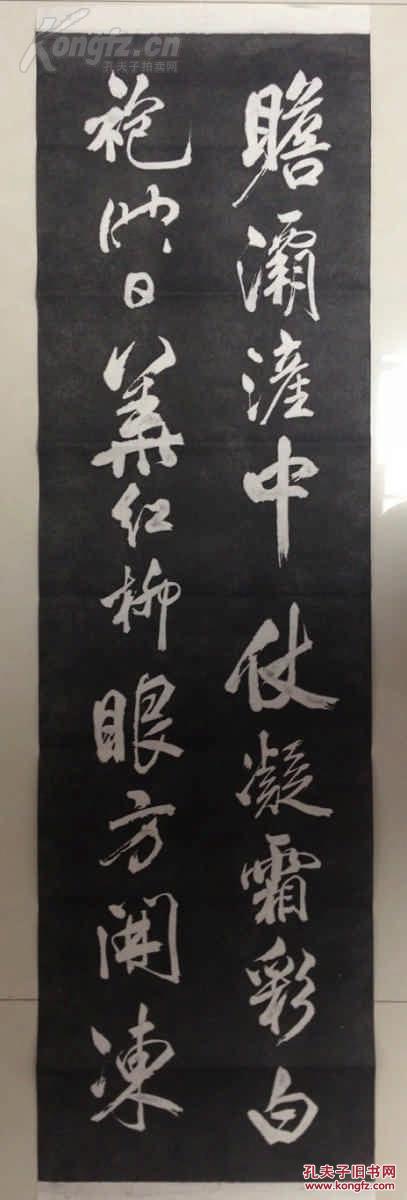 Kongfz.cn
孔夫子拍卖网
瞻灞滻中仗凝霜彩白
袍映日華紅柳眼方開凍
孔夫子旧书网
www.kongfz.com